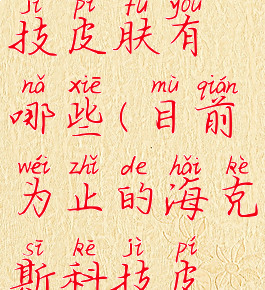 jì pí fū yǒu
技皮肤有
nǎ xiē mù qián
哪些(目前
wéi zhǐ de hǎi kè
为止的海克
sī kē jì pí
斯科技皮